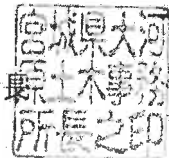 宮城県大河
原土木事務
所長之印